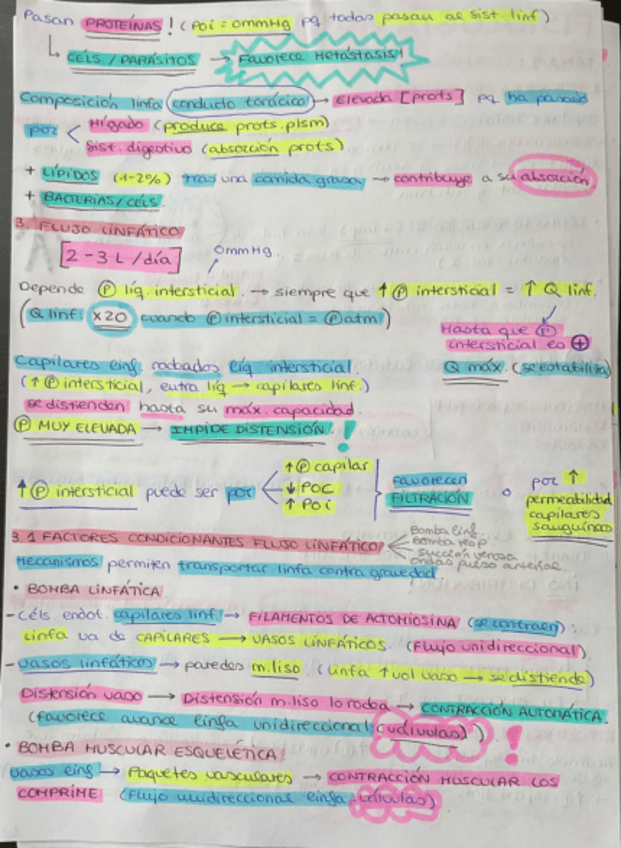 Pasan PROTEÍNAS! (Poi = 0mmHg pq todas pasan al sist. linf)
↳ CÉLS / PARÁSITOS → Favorece Metástasis!
Composición linfa (conducto torácico) → Elevada [prots] pq ha pasado
por < Hígado (produce prots. plsm)
Sist. digestivo (absorción prots)
+ LÍPIDOS (1-2%) tras una comida grasa → contribuye a su absorción.
+ BACTERIAS/CÉLS.
3. FLUJO LINFÁTICO
[2-3 L/día]
0mmHg.
Depende Ⓟ líq. intersticial. → siempre que ↑ Ⓟ intersticial = ↑ Q linf.
(Q linf. x20 cuando Ⓟ intersticial = Ⓟ atm)
Hasta que Ⓟ
intersticial es ⊕
Q máx. (se estabiliza)
Capilares linf. rodeados líq. intersticial.
(↑ Ⓟ intersticial, entra líq → capilares linf.)
se distienden hasta su máx. capacidad.
Ⓟ MUY ELEVADA → IMPIDE DISTENSIÓN!
↑ Ⓟ intersticial puede ser por
↑ Ⓟ capilar
↓ POC
↑ POi
favorecen
FILTRACIÓN
o
por ↑
permeabilidad
capilares
sanguíneos
3.1 FACTORES CONDICIONANTES FLUJO LINFÁTICO
Bomba linf
Bomba resp
Succión venosa
Ondas pulso arterial.
Mecanismos permiten transportar linfa contra gravedad
• BOMBA LINFÁTICA
- Céls endot. capilares linf. → FILAMENTOS DE ACTOMIOSINA (se contraen).
Linfa va de CAPILARES → VASOS LINFÁTICOS. (Flujo unidireccional)
- Vasos linfáticos → paredes m. liso. (linfa ↑ vol vaso → se distiende)
Distensión vaso → Distensión m. liso lo rodea → CONTRACCIÓN AUTOMÁTICA.
(favorece avance linfa unidireccional (válvulas)) !
• BOMBA MUSCULAR ESQUELÉTICA
Vasos linf → Paquetes vasculares → CONTRACCIÓN MUSCULAR LOS
COMPRIME (Flujo unidireccional linfa, válvulas)